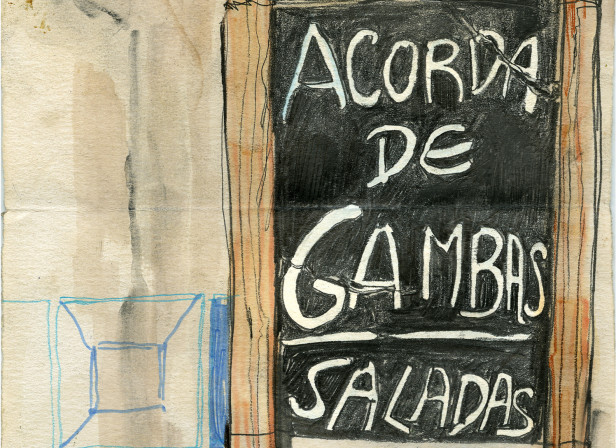 ACORDA
DE
GAMBAS
SALADAS